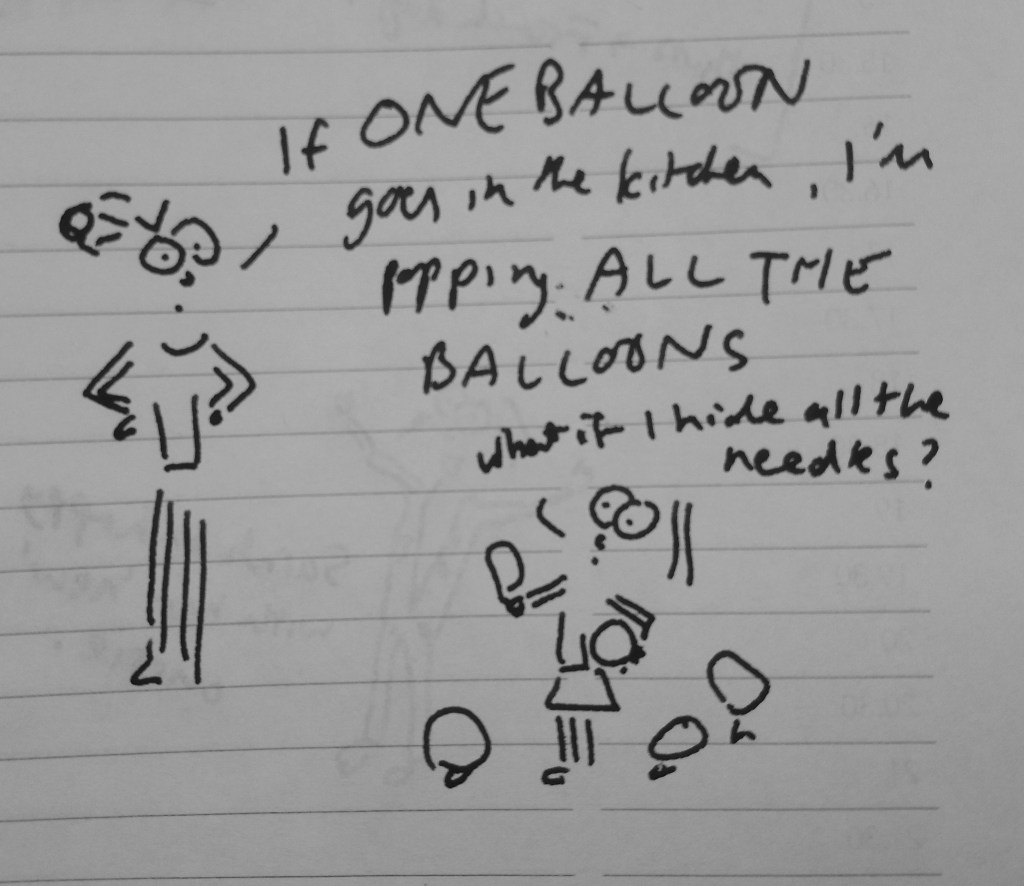 If ONE BALLOON
goes in the kitchen, I'm
popping ALL THE
BALLOONS
what if I hide all the
needles?